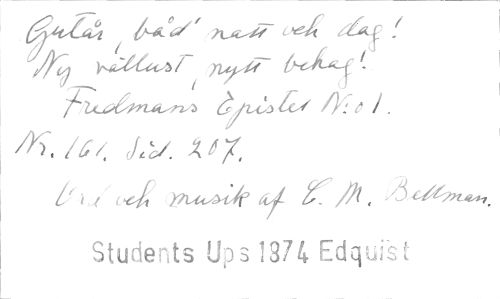 Gutår, båd' natt och dag!
Ny vällust, nytt behag!
Fredmans Epistel N:o 1.
Nr. 161. Sid. 207.
Ord och musik af C. M. Bellman.
Students Ups 1874 Edquist